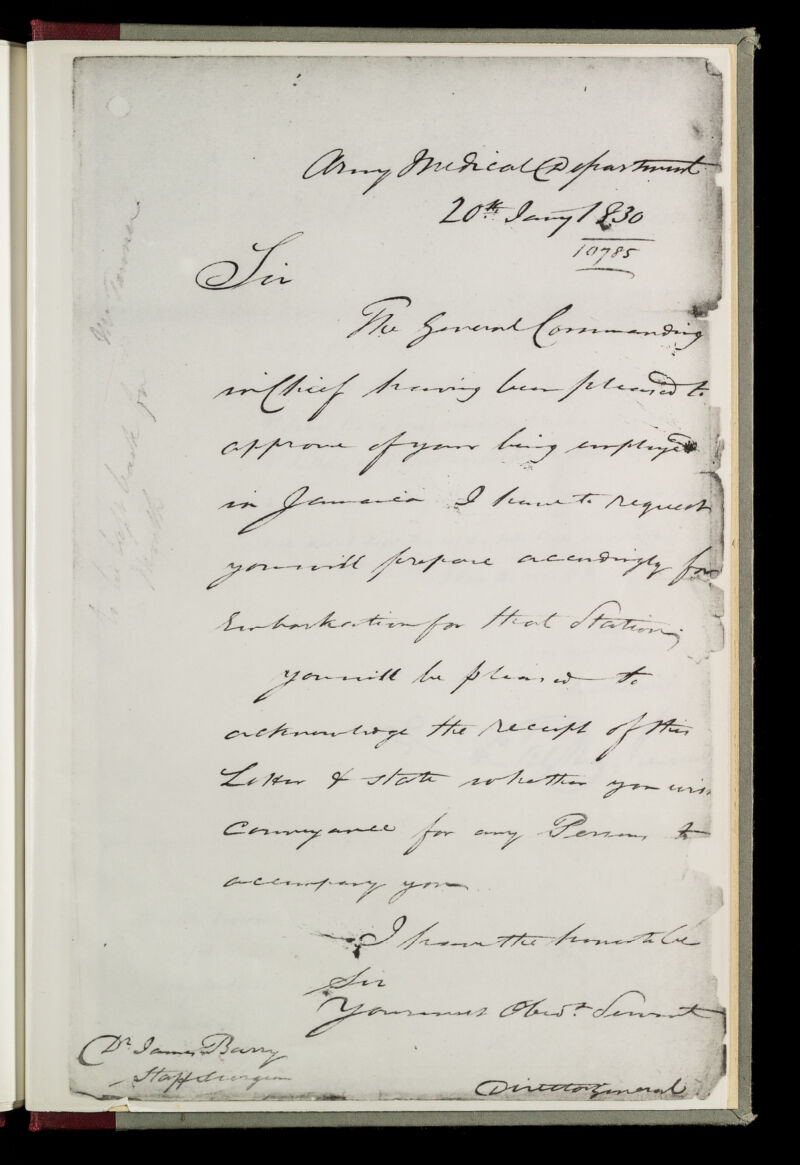 Army Medical Department
20th Jany 1830
10785
Sir
The General Commanding
in Chief having been pleased to
approve of your being employed
in Jamaica I have to request
you will prepare accordingly for
Embarkation for that Station;
you will be pleased to
acknowledge the receipt of this
Letter & state whether you wish
conveyance for any Person to
accompany you
I have the honor to be
Sir
Your most Obedt Servant
Director General
Dr James Barry
Staff Surgeon
Mr Tanner
to be kept back for